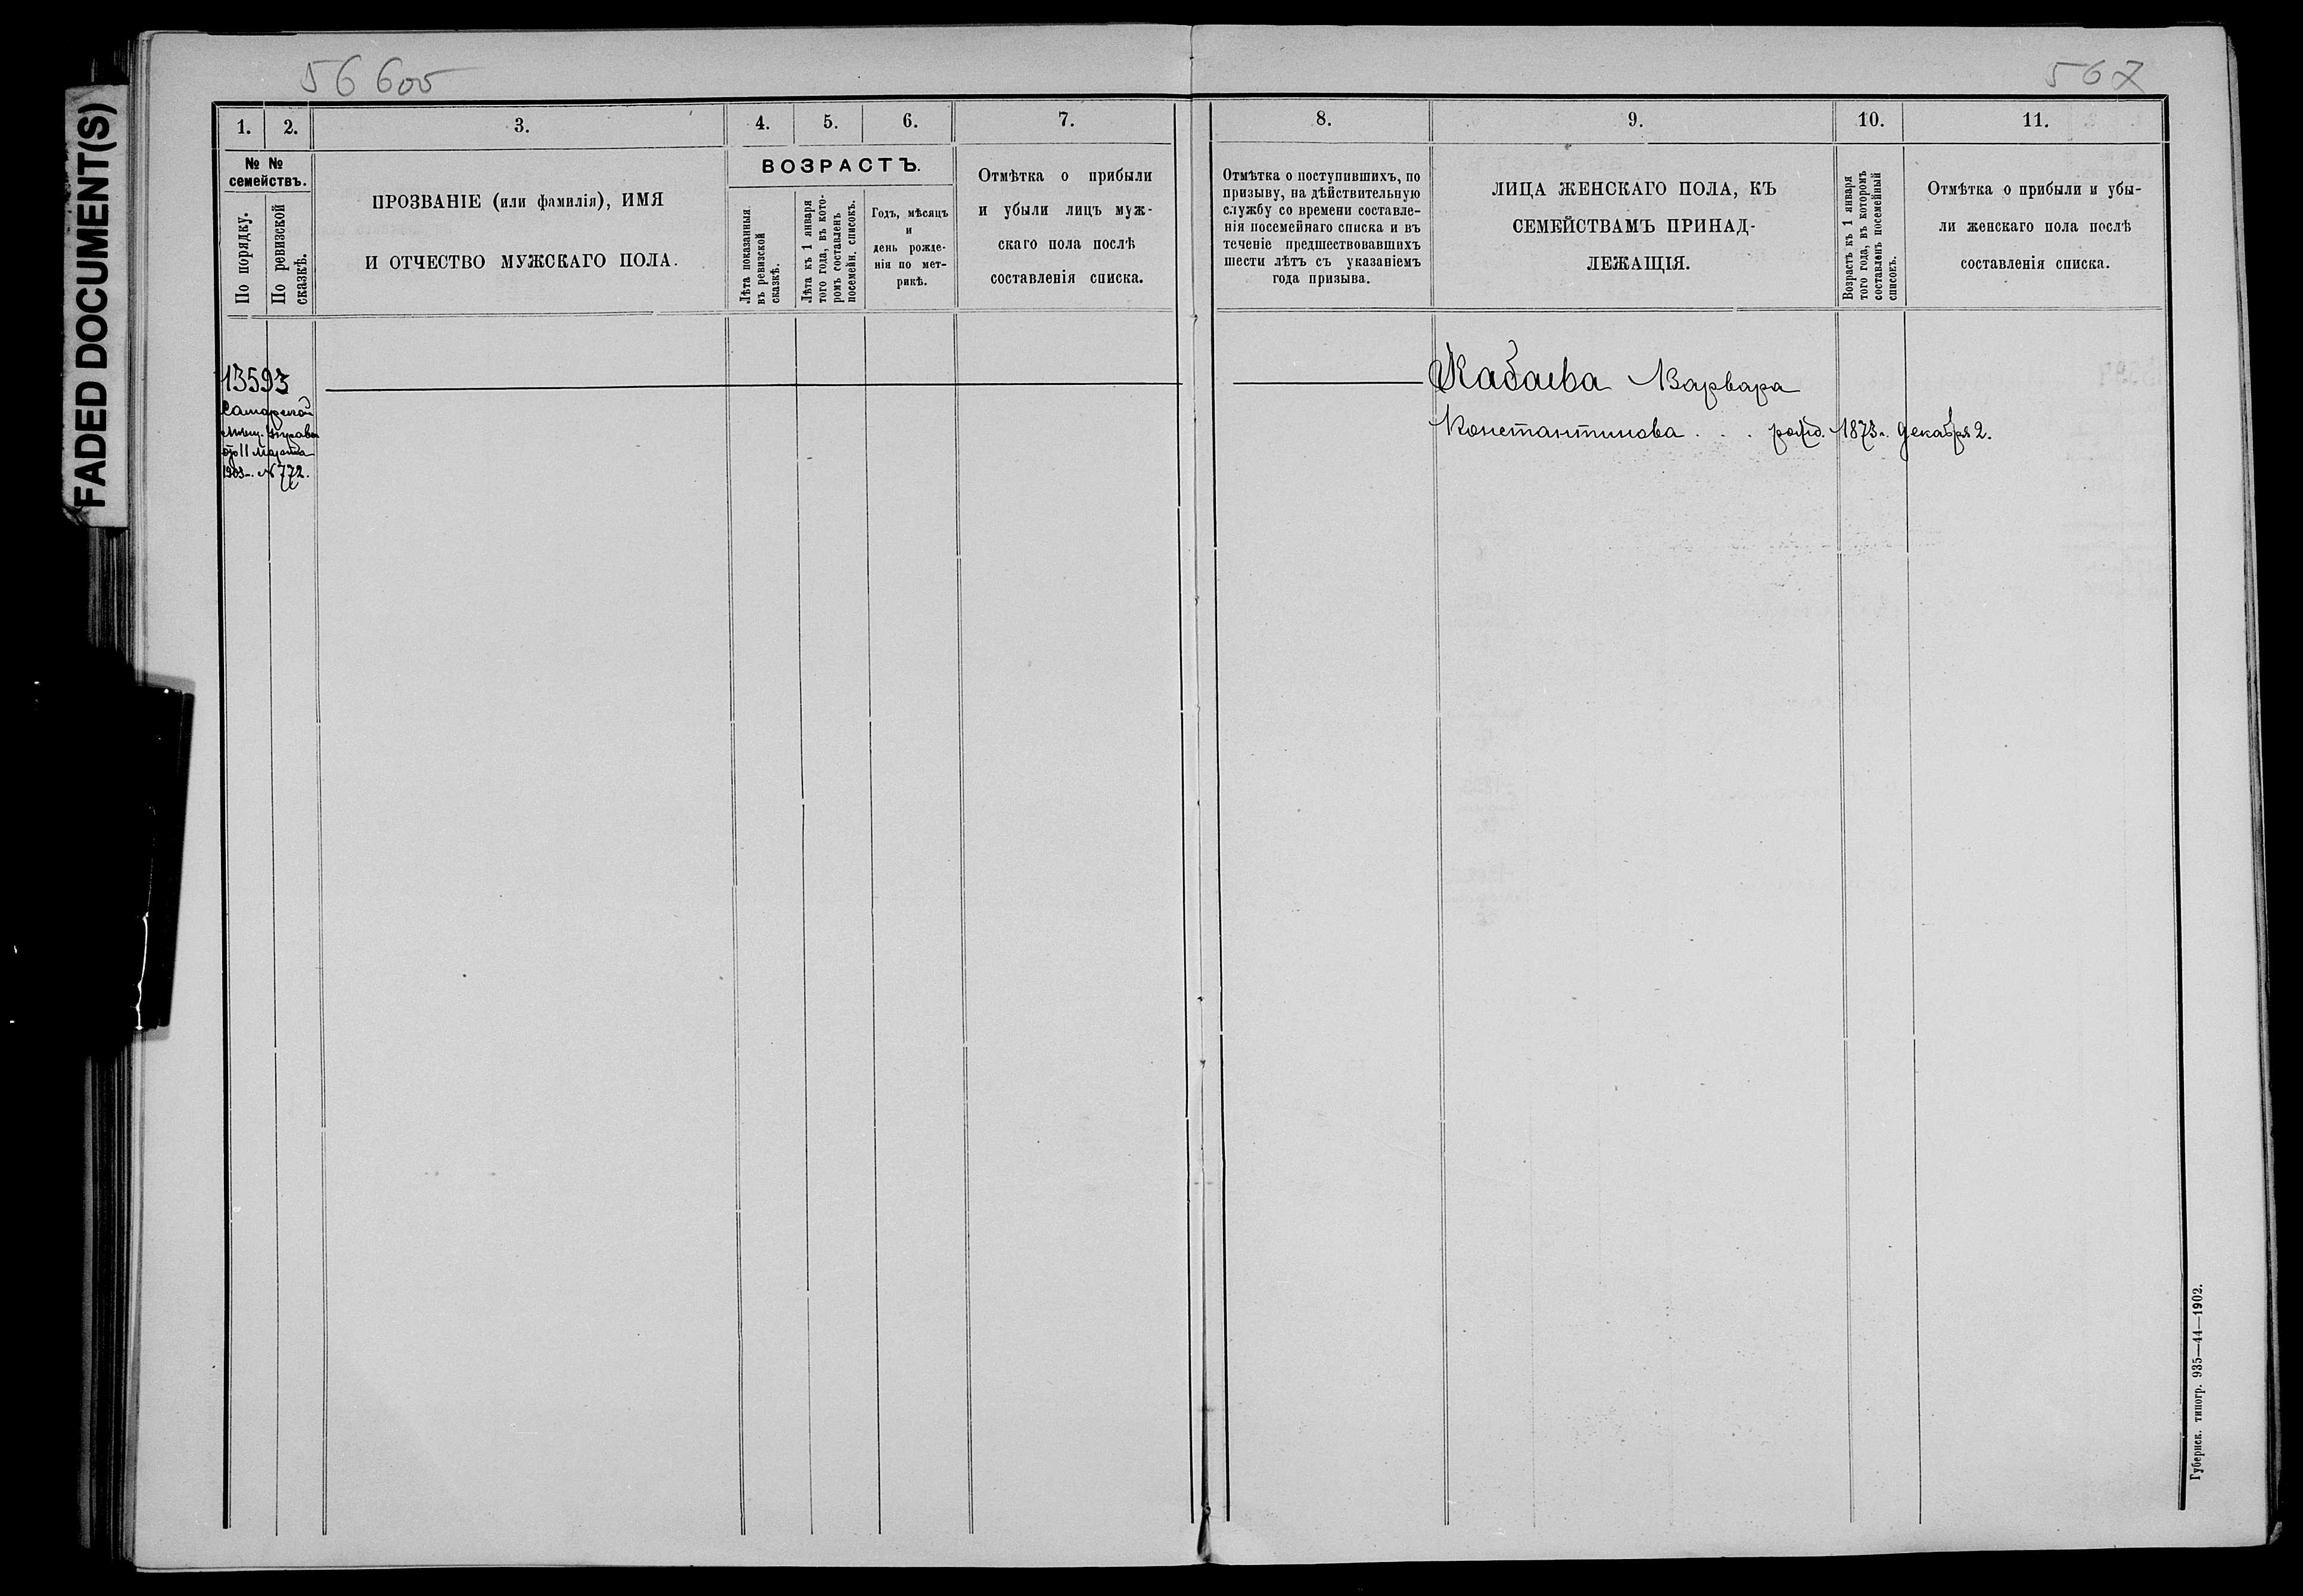 FADED DOCUMENT(S)
56 6об
567
1. 2. 3. 4. 5. 6. 7.
№ №
семействъ.
По порядку.
По ревизской
сказкѣ.
ПРОЗВАНІЕ (или фамилія), ИМЯ
И ОТЧЕСТВО МУЖСКАГО ПОЛА.
ВОЗРАСТЪ.
Лѣта показанныя
въ ревизской
сказкѣ.
Лѣта къ 1 января
того года, въ кото-
ромъ составленъ
посемейн. списокъ.
Годъ, мѣсяцъ
и
день рожде-
нія по мет-
рикѣ.
Отмѣтка о прибыли
и убыли лицъ муж-
скаго пола послѣ
составленія списка.
13593
Самарской
Мѣщ. Управы
отъ 11 Марта
1903 г. № 772.
8. 9. 10. 11.
Отмѣтка о поступившихъ, по
призыву, на дѣйствительную
службу со времени составле-
нія посемейнаго списка и въ
теченіе предшествовавшихъ
шести лѣтъ съ указаніемъ
года призыва.
ЛИЦА ЖЕНСКАГО ПОЛА, КЪ
СЕМЕЙСТВАМЪ ПРИНАД-
ЛЕЖАЩІЯ.
Возрастъ къ 1 января
того года, въ которомъ
составленъ посемейный
списокъ.
Отмѣтка о прибыли и убы-
ли женскаго пола послѣ
составленія списка.
Кабаева Варвара
Константинова . . . рожд. 1873 г. декабря 2.
Губернск. типогр. 935—44—1902.